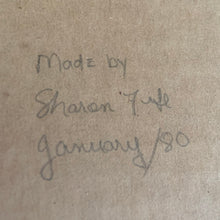 Made by
Sharon
January/80